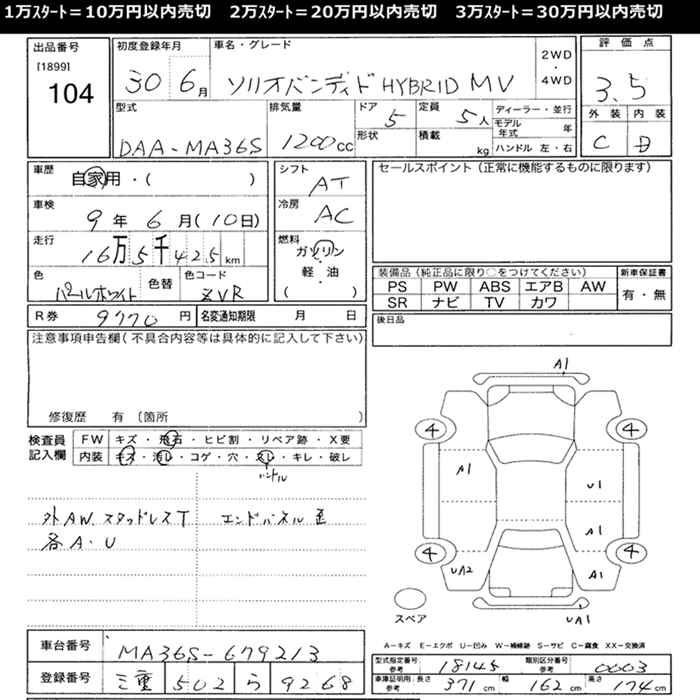 1万スタート＝10万円以内売切　2万スタート＝20万円以内売切　3万スタート＝30万円以内売切
出品番号
[1899]
104
初度登録年月
30年6月
車名・グレード
ソリオバンディド HYBRID MV
2WD
・
4WD
評価点
3.5
外装 内装
C D
型式
DAA-MA36S
排気量
1200cc
ドア
5
形状
定員
5人
積載
kg
ディーラー・並行
モデル年式 年
ハンドル 左・右
車歴
自家用・( )
車検
9年6月(10日)
走行
16万5千425km
色
パールホワイト
色替
色コード
ZVR
シフト
AT
冷房
AC
燃料
ガソリン
軽・油
( )
セールスポイント（正常に機能するものに限ります）
装備品（純正品に限り○をつけてください）
PS PW ABS エアB AW
SR ナビ TV カワ
新車保証書
有・無
R券 9770円
名変通知期限 月 日
後日品
注意事項申告欄(不具合内容等は具体的に記入して下さい)
修復歴 有〔箇所 〕
検査員記入欄
FW キズ・飛石・ヒビ割・リペア跡・X要
内装 キズ・汚れ・コゲ・穴・スレ・キレ・破レ
ハンドル
外AW.スタッドレスT
各A・U
エンドパネル歪
A1
4
4
A1
U1
A1
4
4
UA2
A1
UA1
スペア
A－キズ E－エクボ U－凹み W－補修跡 S－サビ C－腐食 XX－交換済
車台番号 MA36S-679213
登録番号 三重 502 ら 9268
型式指定番号 参考 18145
類別区分番号 参考 0003
車庫証明用:長さ 参考 371cm
幅 162cm
高さ 174cm